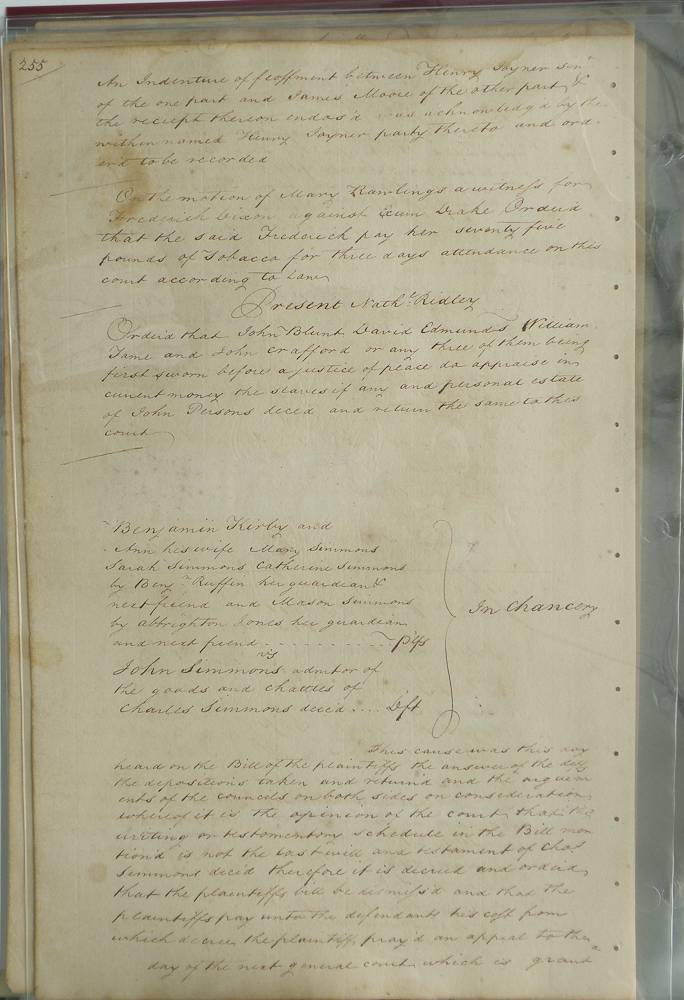 255
An Indenture of feoffment between Henry Joyner Senr
of the one part and James Moore of the other part &
the reciept thereon endos'd was acknowledg'd by the
within named Henry Joyner party thereto and ord-
er'd to be recorded
On the motion of Mary Rawlings a witness for
Frederick against Drake Ordeid
that the said Frederick pay her seventy five
pounds of Tobacco for three days attendance on this
court according to Law
Present Nathl. Ridley
Ordeid that John Blunt David Edmunds William
Tame and John Crafford or any three of them being
first sworn before a justice of peace do appraise in
current money the slaves if any and personal estate
of John Persons deced and return the same to this
court
Benjamin Kirby and
Ann his wife Mary Simmons
Sarah Simmons Catherine Simmons
by Benjn Ruffin her guardean &
next freind and Mason Simmons
by Albrighton Jones her guardean
and next freind - - - - - - - - Plfs
vs
In Chancery
John Simmons admtor of
the goods and chattles of
Charles Simmons deceid .... Dft
This cause was this day
heard on the Bill of the plaintiffs the answer of the deft
the depositions taken and return'd and the arguem
ents of the councils on both sides on consideration
whereof it is the opinion of the court that the
writing or testomentory schedule in the Bill men
tion'd is not the last will and testament of Chas
Simmons deceid therefore it is decried and ordeid
that the plaintiffs bill be dismiss'd and that the
plaintiffs pay unto the defendant his cost from
which decree the plaintiff pray'd an appeal to the
day of the next general court which is grant